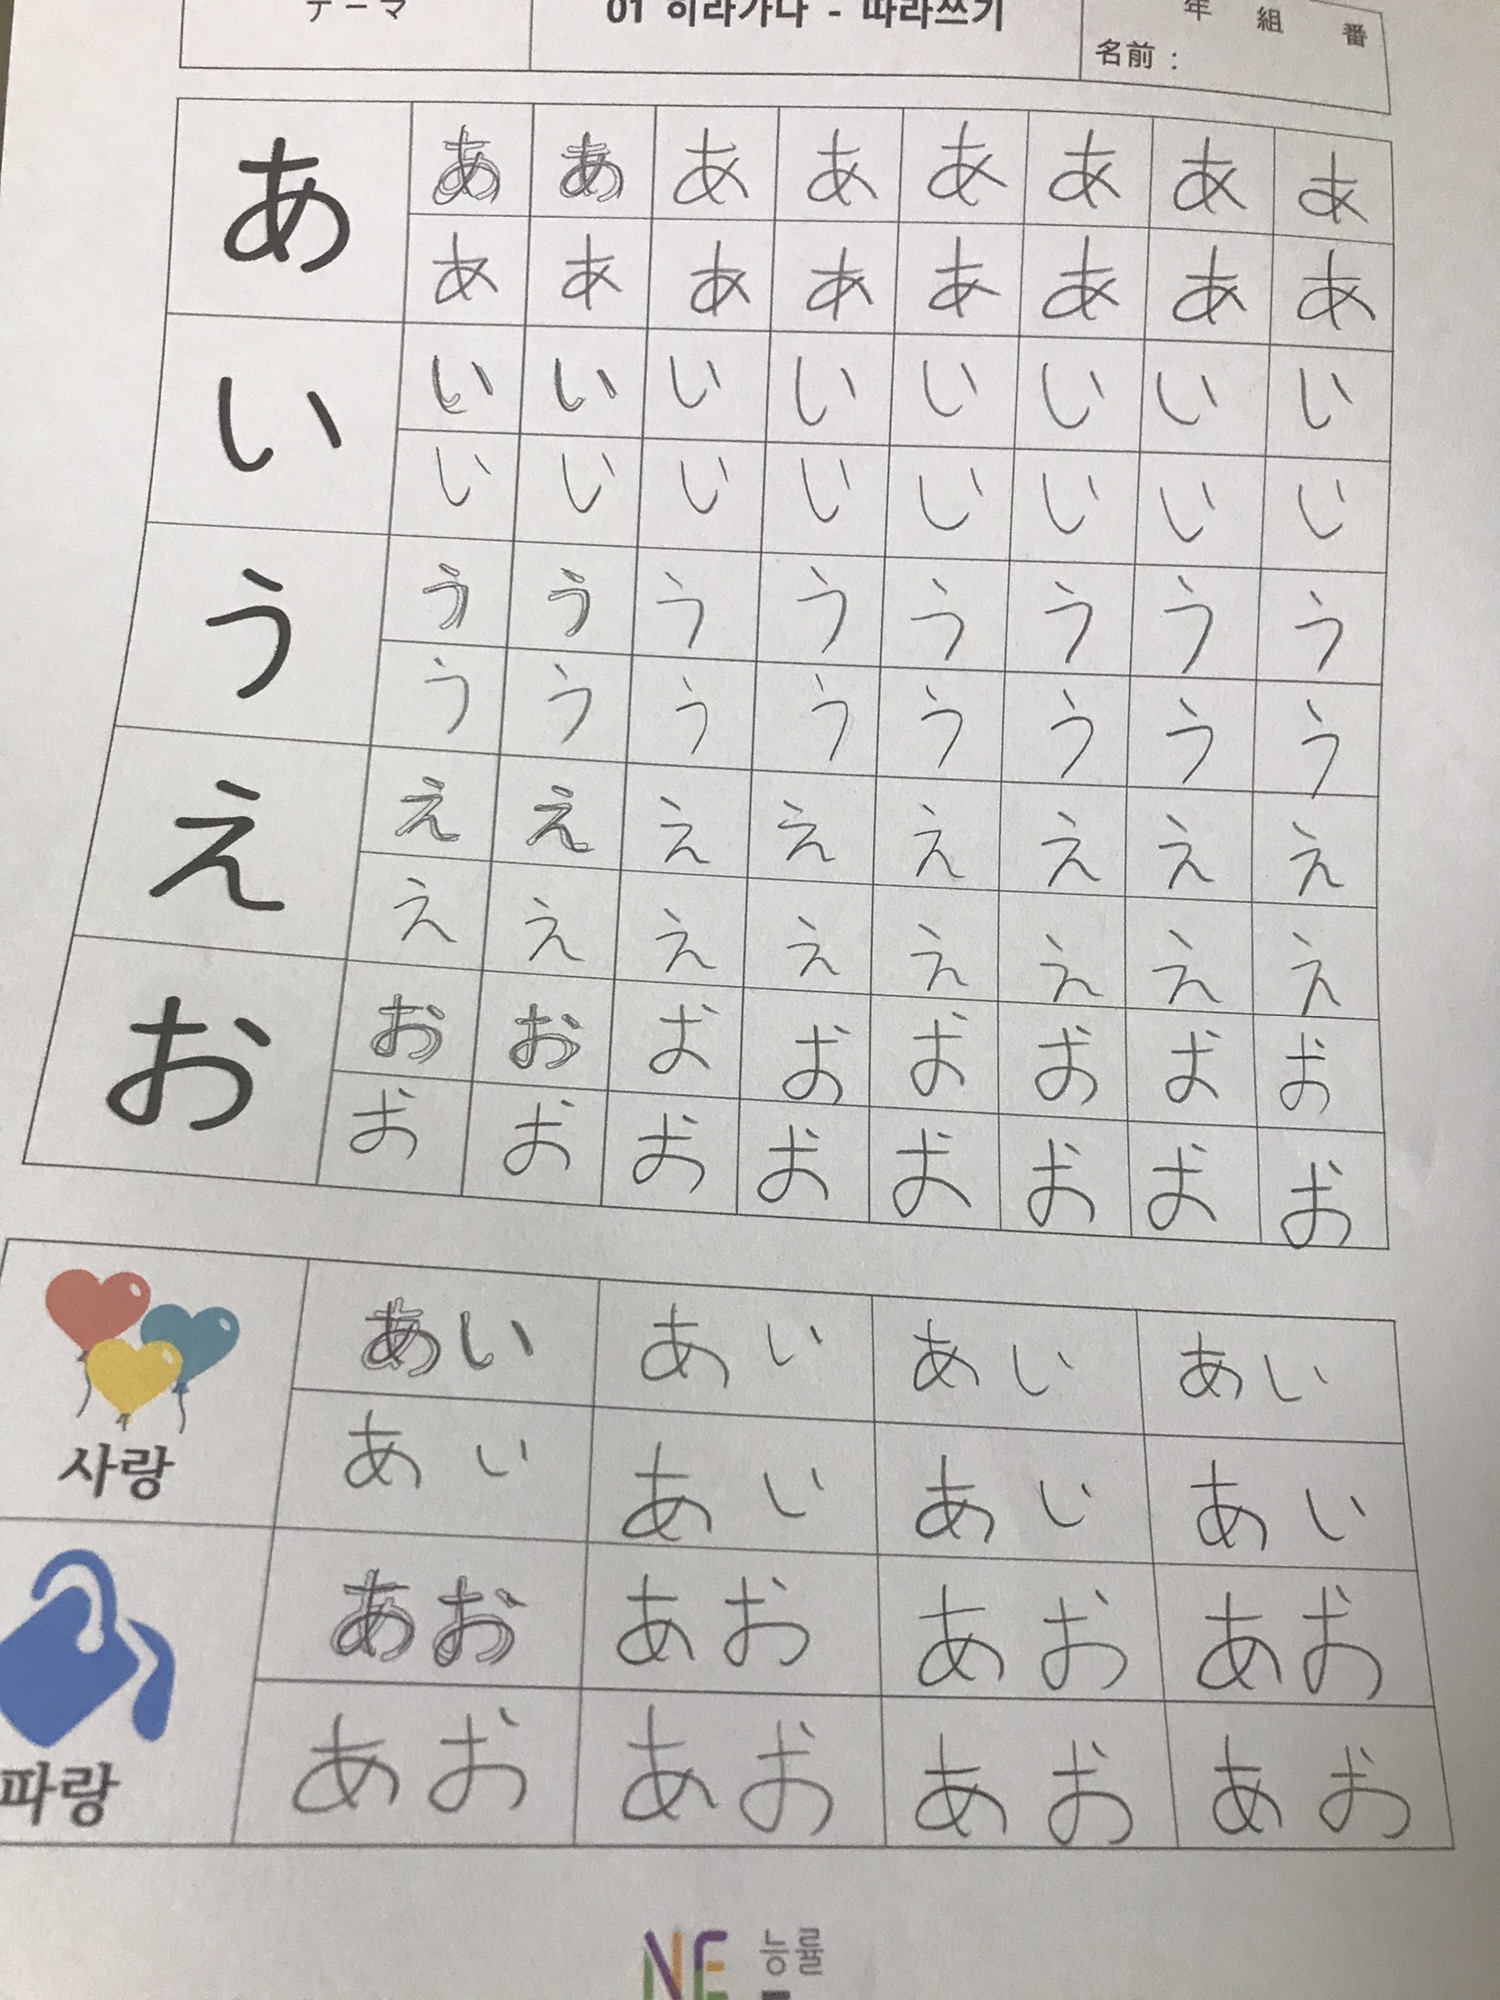 テーマ 01 히라가나 - 따라쓰기 年 組 番
名前 :
あ あ あ あ あ あ あ あ あ
あ あ あ あ あ あ あ あ
い い い い い い い い い
い い い い い い い い
う う う う う う う う う
う う う う う う う う
え え え え え え え え え
え え え え え え え え
お お お お お お お お お
お お お お お お お お
あい あい あい あい
사랑 あい あい あい あい
あお あお あお あお
파랑 あお あお あお あお
NE 능률